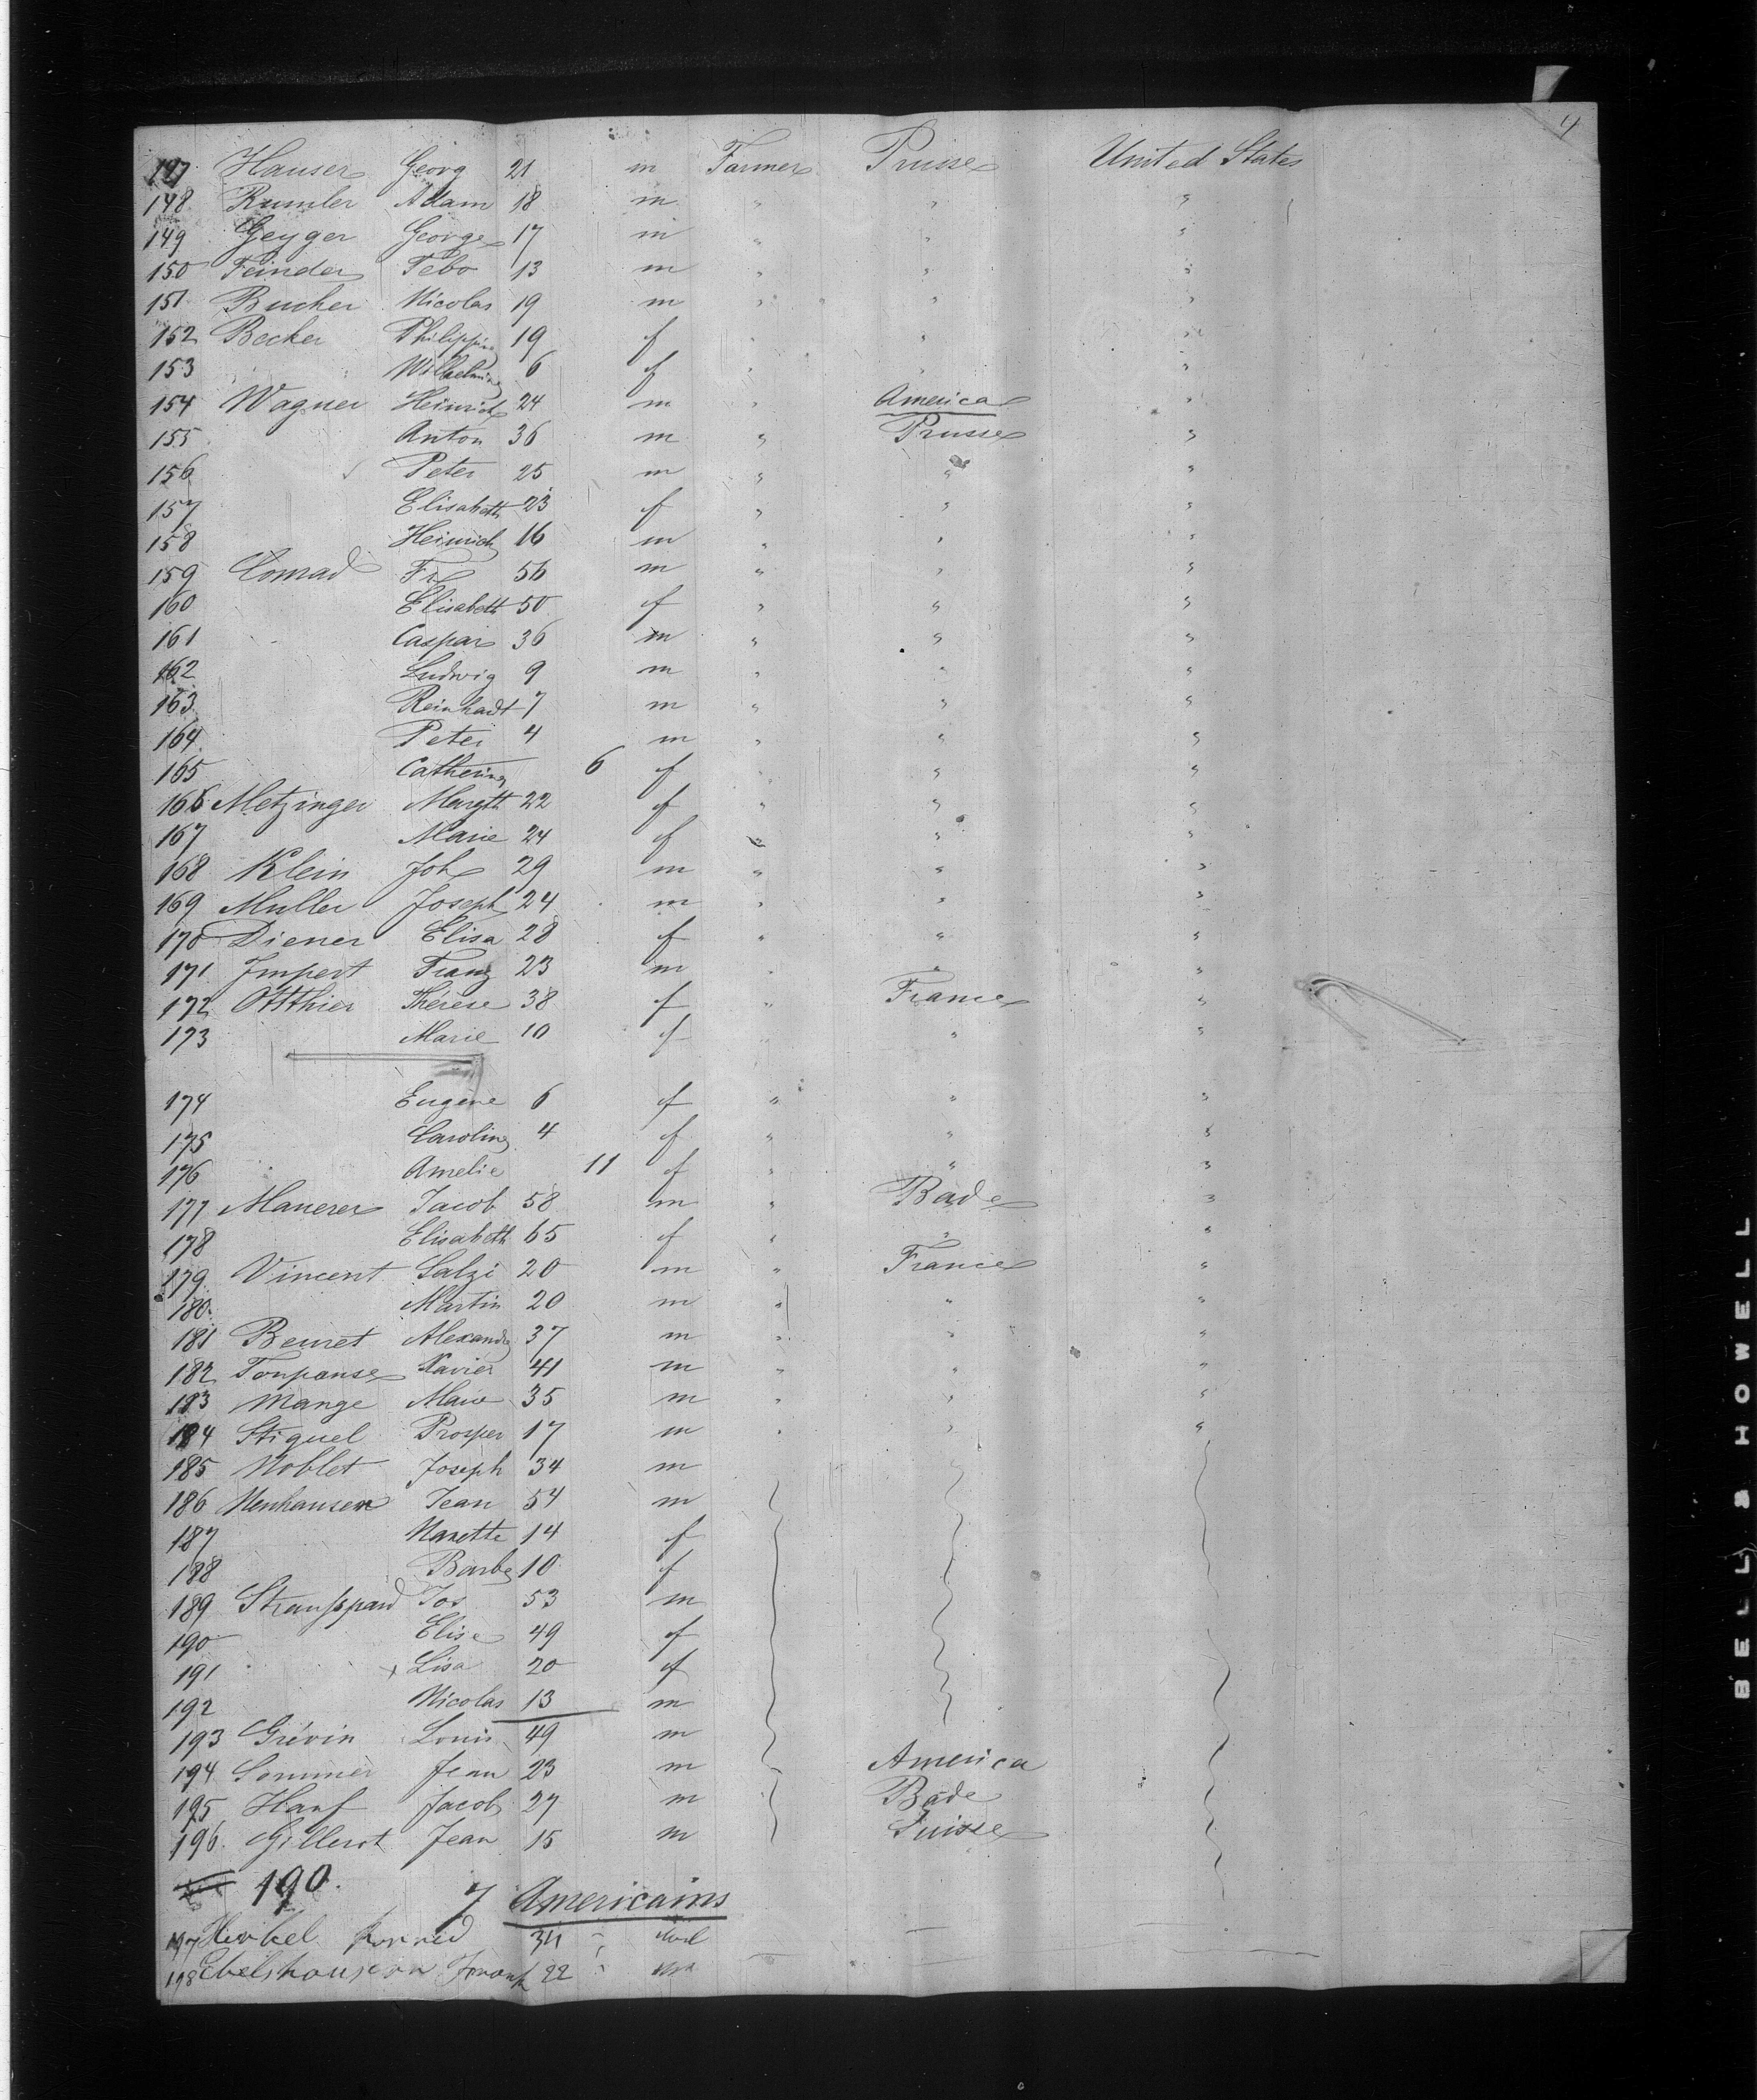 4
147 Hauser Georg 21 m Farmer Prusse United States
148 Rumler Adam 18 m " " "
149 Geyger George 17 m " " "
150 Feinder Tebo 13 m " " "
151 Bucher Nicolas 19 m " " "
152 Becker Philippine 19 f " " "
153 " " Wilhelmine 6 f " " "
154 Wagner Heinrich 24 m " America "
155 Anton 36 m " Prusse "
156 Peter 25 m " " "
157 Elisabeth 23 f " " "
158 Heinrich 16 m " " "
159 Conrad Fr 56 m " " "
160 Elisabeth 50 f " " "
161 Caspar 36 m " " "
162 Ludwig 9 m " " "
163 Reinhadt 7 m " " "
164 Peter 4 m " " "
165 Catherine 6 f " " "
166 Metzinger Margth 22 f " " "
167 Marie 24 f " " "
168 Klein Joh 29 m " " "
169 Muller Joseph 24 m " " "
170 Diener Elisa 28 f " " "
171 Impert Franz 23 m " " "
172 Otthier Thérese 38 f " France "
173 Marie 10 f " " "
174 Eugène 6 f " " "
175 Caroline 4 f " " "
176 Amelie 11 f " " "
177 Maurer Jacob 58 m " Bade "
178 Elisabeth 65 f " " "
179 Vincent Salzi 20 m " France "
180 Martin 20 m " " "
181 Beuret Alexandre 37 m " " "
182 Toupanse Xavier 41 m " " "
183 Mange 35 m " " "
184 Stiquel Prosper 17 m " " "
185 Noblet Joseph 34 m
186 Neuhausen Jean 54 m
187 Nanette 14 f
188 Barbe 10 f
189 Jos 53 m
190 Elise 49 f
191 x Lisa 20 f
192 Nicolas 13 m
193 Grévin Louis 49 m
194 Sommer Jean 23 m America
195 Hauf Jacob 27 m Bade
196 Gillerot Jean 15 m Suisse
190.
7 Americains
197 Henkel 34
198 22
BELL & HOWELL